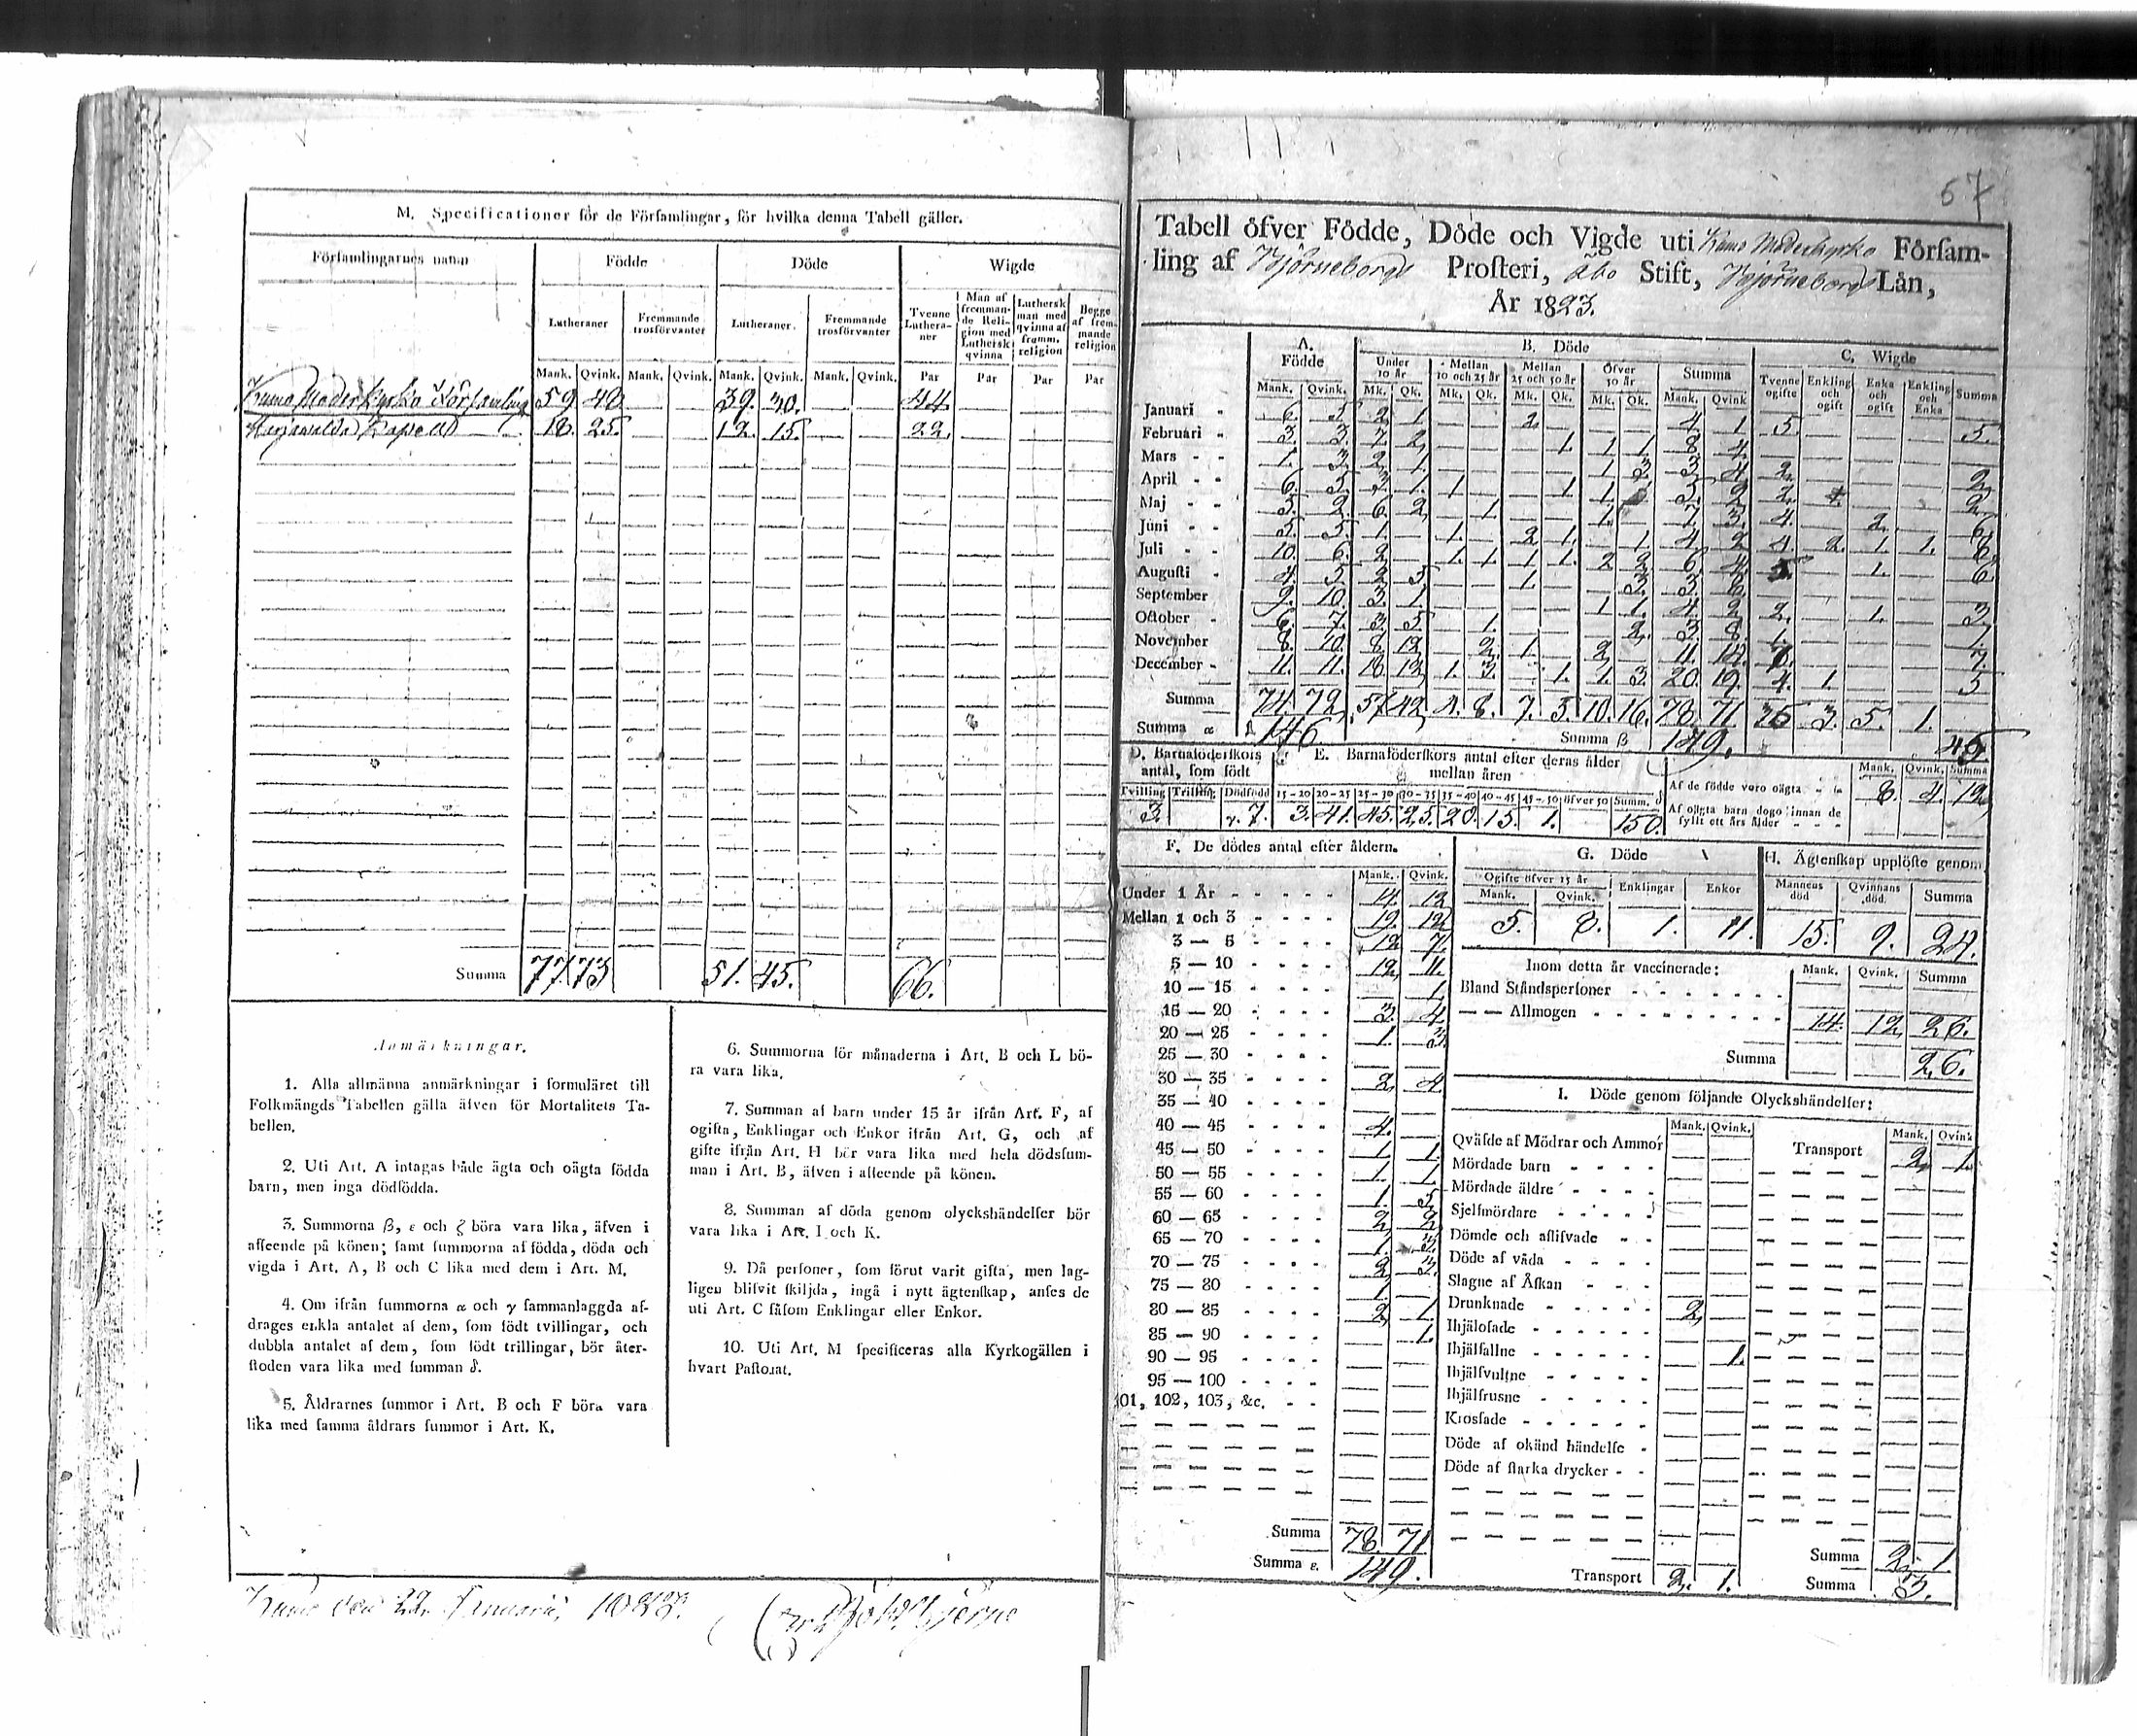 M. Specificationer för de Församlingar, för hvilka denna Tabell gäller.
Församlingarnes namn Födde Döde Wigde
Lutheraner Fremmande trosförvanter Lutheraner. Fremmande trosförvanter Tvenne Lutheraner Man af fremmande Religion med Luthersk qvinna Luthersk man med qvinna af framm. religion Begge af fremmande religion
Mank. Qvink. Mank. Qvink. Mank. Qvink. Mank. Qvink. Par Par Par Par
Kumo Moderkyrko Församling 59 48 39. 30. 44
Kapell 18. 25. 12. 15. 22.
Summa 77. 73 51. 45. 66.
Anmärkningar.
1. Alla allmänna anmärkningar i formuläret till
Folkmängds Tabellen gälla äfven för Mortalitets Ta-
bellen.
2. Uti Art. A intagas både ägta och oägta födda
barn, men inga dödfödda.
3. Summorna β, ε och ζ böra vara lika, äfven i
afseende på könen; samt summorna af födda, döda och
vigda i Art. A, B och C lika med dem i Art. M.
4. Om ifrån summorna α och γ sammanlaggda af-
drages enkla antalet af dem, som födt tvillingar, och
dubbla antalet af dem, som födt trillingar, bör åter-
stoden vara lika med summan δ.
5. Åldrarnes summor i Art. B och F böra vara
lika med samma åldrars summor i Art. K.
6. Summorna för månaderna i Art. B och L bö-
ra vara lika.
7. Summan af barn under 15 år ifrån Art. F, af
ogifta, Enklingar och Enkor ifrån Art. G, och af
gifte ifrån Art. H bör vara lika med hela dödssum-
man i Art. B, äfven i afseende på könen.
8. Summan af döda genom olyckshändelser bör
vara lika i Art. I och K.
9. Då personer, som förut varit gifta, men lag-
ligen blifvit skiljda, ingå i nytt ägtenskap, anses de
uti Art. C såsom Enklingar eller Enkor.
10. Uti Art. M specificeras alla Kyrkogällen i
hvart Pastorat.
Kumo den 22. Januarii
57
Tabell öfver Födde, Döde och Vigde uti Kumo Moderkyrko Försam-
ling af Björneborgs Prosteri, Åbo Stift, Björneborgs Län,
År 1823.
A. Födde B. Döde C. Wigde
Under 10 år Mellan 10 och 25 år Mellan 25 och 50 år Öfver 50 år Summa Tvenne ogifte Enkling och ogift Enka och ogift Enkling och Enka Summa
Mank. Qvink. Mk. Qk. Mk. Qk. Mk. Qk. Mk. Qk. Mank. Qvink
Januari 6. 5 2 1. 2. 4 1 5. 5.
Februari 3. 3. 7 2 1. 1 1 8 4
Mars 1. 3 2 1. 1 3 3 4 2. 2
April
Maj
Juni
Juli
Augusti
September 9. 10. 3. 1. 1 1. 4 2 2. 1. 3
Oktober 6. 7. 3 5 1. 2. 3. 8. 1. 1
November 8. 10. 8 12 2. 1. 2 11. 14. 7. 7
December 11. 11. 18 13 1. 3. 1. 1. 3. 20. 19. 4. 1. 5
Summa 74. 72 57 42 4. 8. 7. 5. 10. 16. 78. 71. 36 3. 5. 1.
Summa α 146 Summa β 149. 45.
D. Barnaföderskors antal, som födt E. Barnaföderskors antal efter deras ålder mellan åren
Tvilling Trilling Dödfödd 15–20 20–25 25–30 30–35 35–40 40–45 45–50 öfver 50 Summ. δ
3. γ. 7. 3. 41. 45. 25. 20. 15. 1. 150.
Mank. Qvink. Summa
Af de födde voro oägta 8. 4. 12
Af oägta barn dogo innan de fyllt ett års ålder
F. De dödes antal efter åldern.
Mank. Qvink.
Under 1 År 14. 12
Mellan 1 och 3 19. 12
3 — 5 12 7.
5 — 10 12 11.
10 — 15 1.
15 — 20 3. 4.
20 — 25 1. 3.
25 — 30
30 — 35 2. 4
35 — 40
40 — 45 4.
45 — 50 1 1
50 — 55 1. 1
55 — 60 1. 5.
60 — 65 2 2
65 — 70 1 3.
70 — 75 2 3.
75 — 80 1.
80 — 85 2 1.
85 — 90 1.
90 — 95
95 — 100
101, 102, 103, &c.
Summa 78. 71
Summa ε. 149.
G. Döde
Ogifte öfver 15 år Enklingar Enkor
Mank. Qvink.
5. 8. 1. 11.
H. Ägtenskap upplöste genom
Mannens död Qvinnans död. Summa
15. 9. 24.
Inom detta år vaccinerade: Mank. Qvink. Summa
Bland Ståndspersoner
— — Allmogen 14. 12 26.
Summa 26.
I. Döde genom följande Olyckshändelser:
Mank. Qvink. Mank. Qvink
Qväfde af Mödrar och Ammor Transport 2 1.
Mördade barn
Mördade äldre
Sjelfmördare
Dömde och aflifvade
Döde af våda
Slagne af Åskan
Drunknade 2
Ihjälosade
Ihjälfallne 1.
Ihjälsvultne
Ihjälfrusne
Krossade
Döde af okänd händelse
Döde af starka drycker
Summa 2. 1
Transport 2. 1. Summa 3.